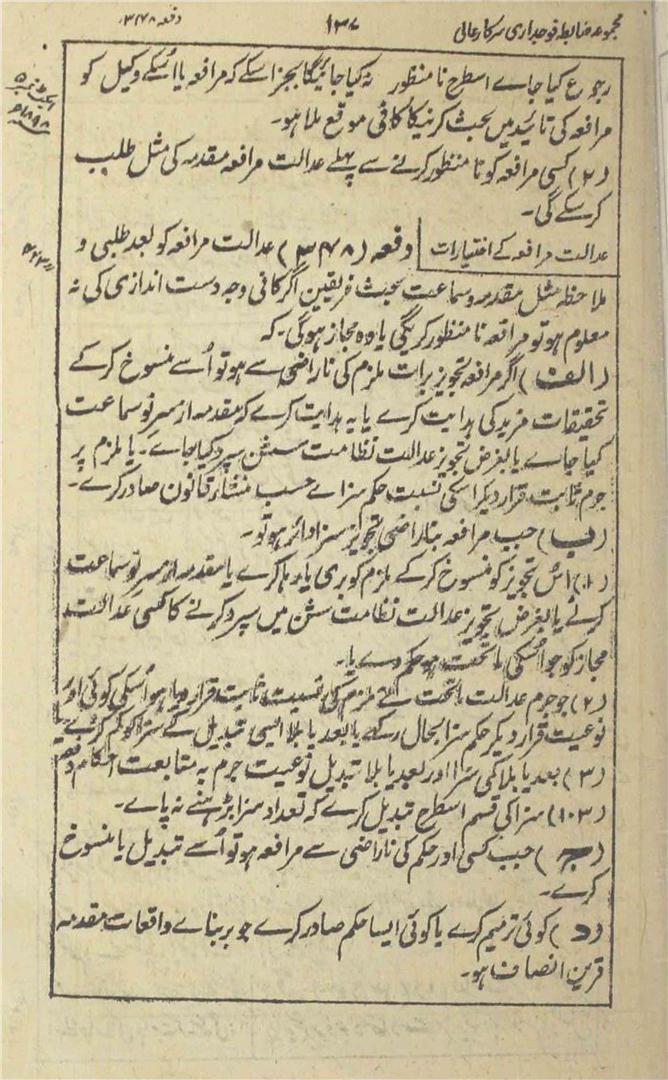 مجموعہ ضابطہ فوجداری سرکار عالی
۱۳۷
دفعہ ۳۴۸
رجوع کیا جاے اسطرح نامنظور نہ کیا جائیگا بجز اسکے کہ مرافعہ یا اُسکے وکیل کو
مرافعہ کی تائید میں بحث کرنیکا کافی موقع ملا ہو۔
(۲) کسی مرافعہ کو نامنظور کرنے سے پہلے عدالت مرافعہ مقدمہ کی مثل طلب
کرسکے گی۔
عدالت مرافعہ کے اختیارات
دفعہ (۳۴۸) عدالت مرافعہ کو بعد طلبی و
ملاحظہ مثل مقدمہ و سماعت بحث فریقین اگر کافی وجہ دست اندازی کی نہ
معلوم ہو تو مرافعہ نامنظور کریگی یا وہ مجاز ہوگی۔ کہ
(الف) اگر مرافعہ تجویز برات ملزم کی ناراضی سے ہو تو اُسے منسوخ کرکے
تحقیقات مزید کی ہدایت کرے یا یہ ہدایت کرے کہ مقدمہ از سر نو سماعت
کیا جاے یا بغرض تجویز عدالت نظامت سشن سپرد کیا جاے۔ یا ملزم پر
جرم ثابت قرار دیکر اسکی نسبت حکم سزاے حسب منشار قانون صادر کرے۔
(ب) جب مرافعہ بناراضی تجویز سزا دائر ہو تو۔
(۱) اس تجویز کو منسوخ کرکے ملزم کو بری یا رہا کرے یا مقدمہ از سر نو سماعت
کرنے یا بغرض تجویز عدالت نظامت سشن میں سپرد کرنے کا کسی عدالت
مجاز کو جو اُسکی ماتحت ہو حکم دے یا۔
(۲) جو جرم عدالت ماتحت نے ملزم کی نسبت ثابت قرار دیا ہو اُسکی کوئی اور
نوعیت قرار دیکر حکم سزا بحال رکھے یا بعد یا بلا ایسی تبدیل کے سزا کو کم کرے یا
(۳) بعد یا بلا کمی سزا اور بعد یا بلا تبدیل نوعیت جرم بہ متابعت احکام دفعہ
(۱۰۳) سزا کی قسم اسطرح تبدیل کرے کہ تعداد سزا بڑہنے نہ پاے۔
(ج) جب کسی اور حکم کی ناراضی سے مرافعہ ہو تو اُسے تبدیل یا منسوخ
کرے۔
(د) کوئی ترمیم کرے یا کوئی ایسا حکم صادر کرے جو بر بناے واقعات مقدمہ
قرین انصاف ہو۔